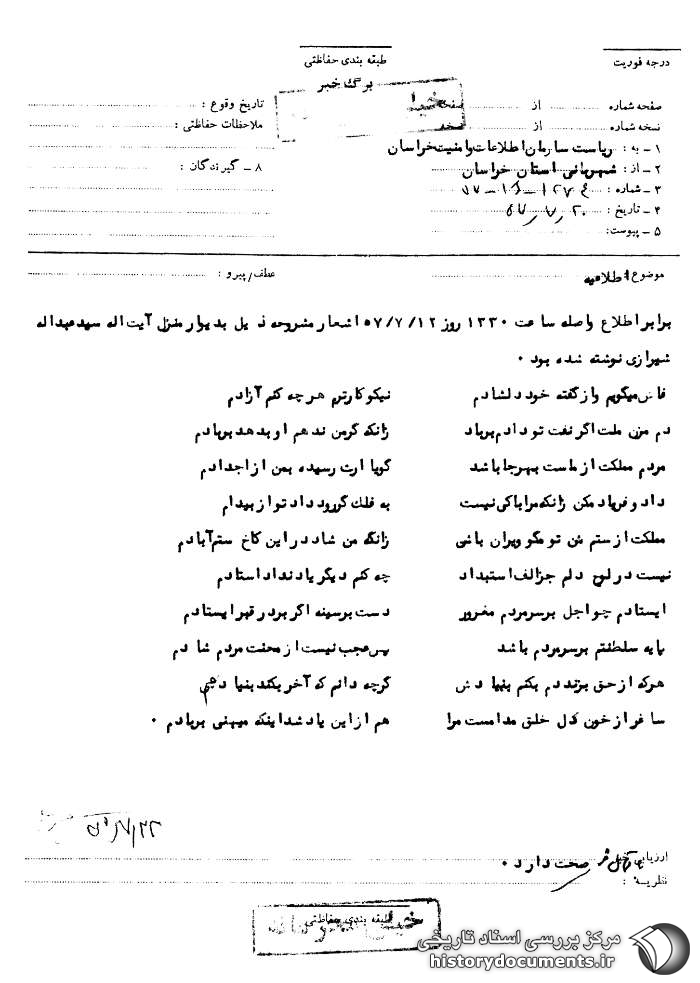 درجه فوریت
طبقه بندی حفاظتی
برگ خبر
صفحه شماره از صفحه
نسخه شماره از نسخه
۱ - به : ریاست سازمان اطلاعات و امنیت خراسان
۲ - از : شهربانی استان خراسان
۳ - شماره :
۴ - تاریخ : ۵۷/۷/۲۰
۵ - پیوست:
تاریخ وقوع :
ملاحظات حفاظتی :
۸ - گیرندگان :
موضوع : اطلاعیه
عطف/پیرو :
برابر اطلاع واصله ساعت ۱۳۳۰ روز ۵۷/۷/۱۲ اشعار مشروحه ذیل بدیوار منزل آیت اله سیدعبداله
شیرازی نوشته شده بود ۰
فاش میگویم و از گفته خود دلشادم نیکو کارترم هرچه کنم آزادم
دم مزن ملت اگر نفت تو دادم برباد زانکه گر من ندهم او بدهد بربادم
مردم مملکت از ماست بهرجا باشد گویا ارث رسیده بمن از اجدادم
داد و فریاد مکن زانکه مرا باکی نیست به فلک گر رود داد تو از بیدادم
مملکت از ستم من تو مگو ویران باشی زانکه من شاد در این کاخ ستم آبادم
نیست در لوح دلم جز الف استبداد چه کنم دیگر یاد نداد استادم
ایستادم چو اجل برسر مردم مغرور دست برسینه اگر بر در قهر ایستادم
پایه سلطنتم برسر مردم باشد پس عجب نیست از محنت مردم شادم
هرکه از حق بزند دم بکنم بنیادش گرچه دانم که آخر بکند بنیادهم
ساغر از خون دل خلق مدامست مرا هم از این یاد شد اینکه میهنی بربادم ۰
ارزیابی خبر صحت دارد ۰
نظریه :
طبقه بندی حفاظتی
خیلی محرمانه
مرکز بررسی اسناد تاریخی
historydocuments.ir